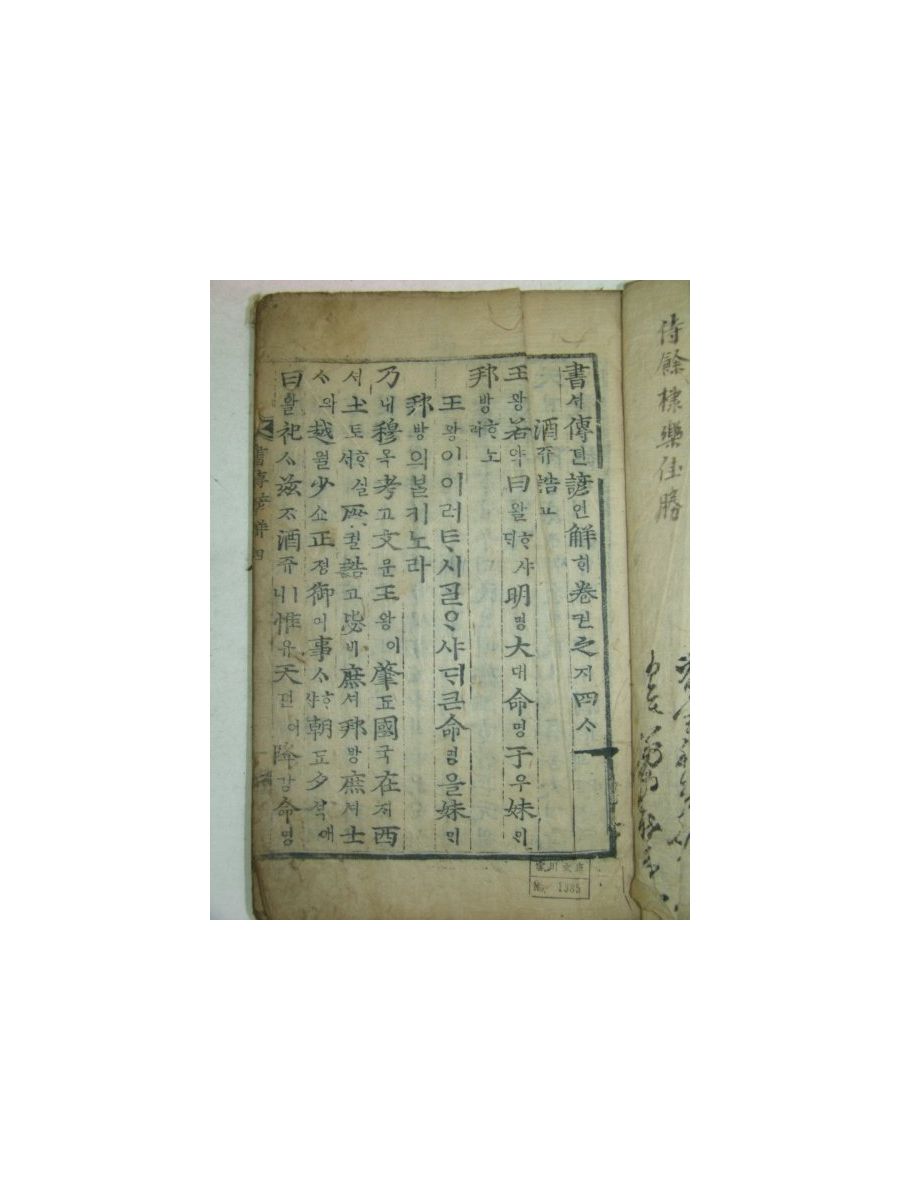 侍餘棣樂佳勝
書셔傳뎐諺언解ᄒᆡ卷권之지四ᄉᆞ
酒쥬誥고
王왕若약曰왈ᄒᆞ샤ᄃᆡ明명大대命명于우妹ᄆᆡ
邦방ᄒᆞ노라
王왕이이러ᄐᆞ시ᄀᆞᆯᄋᆞ샤ᄃᆡ큰命명을妹ᄆᆡ
邦방의ᄇᆞᆯ키노라
乃내穆목考고文문王왕이肇됴國국在ᄌᆡ西
셔土토ᄒᆞ실ᄉᆡ厥궐誥고毖비庶셔邦방庶셔士
ᄉᆞ와越월少쇼正졍御어事ᄉᆞᄒᆞ샤朝됴夕셕애
曰왈祀ᄉᆞ玆ᄌᆞ酒쥬ㅣ니惟유天텬이降강命명
書傳諺解 四
No. 1385